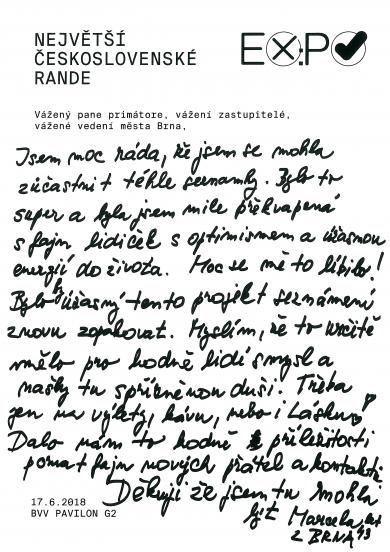 NEJVĚTŠÍ
ČESKOSLOVENSKÉ
RANDE
EXPO
Vážený pane primátore, vážení zastupitelé,
vážené vedení města Brna,
Jsem moc ráda, že jsem se mohla
zúčastnit téhle seznamky. Bylo to
super a byla jsem mile překvapená
s fajn lidiček s optimismem a úžasnou
energií do života. Moc se mě to líbilo!
Bylo by úžasný tento projekt seznámení
znovu zopakovat. Myslím, že to určitě
mělo pro hodně lidí smysl a
našly tu spřízněnou duši. Třeba
jen na výlety, kávu, nebo i Lásku
Dalo nám to hodně příležitostí
poznat fajn nových přátel a kontaktů
Děkuji že jsem tu mohla
být Marcela,
z BRNA
17.6.2018
BVV PAVILON G2